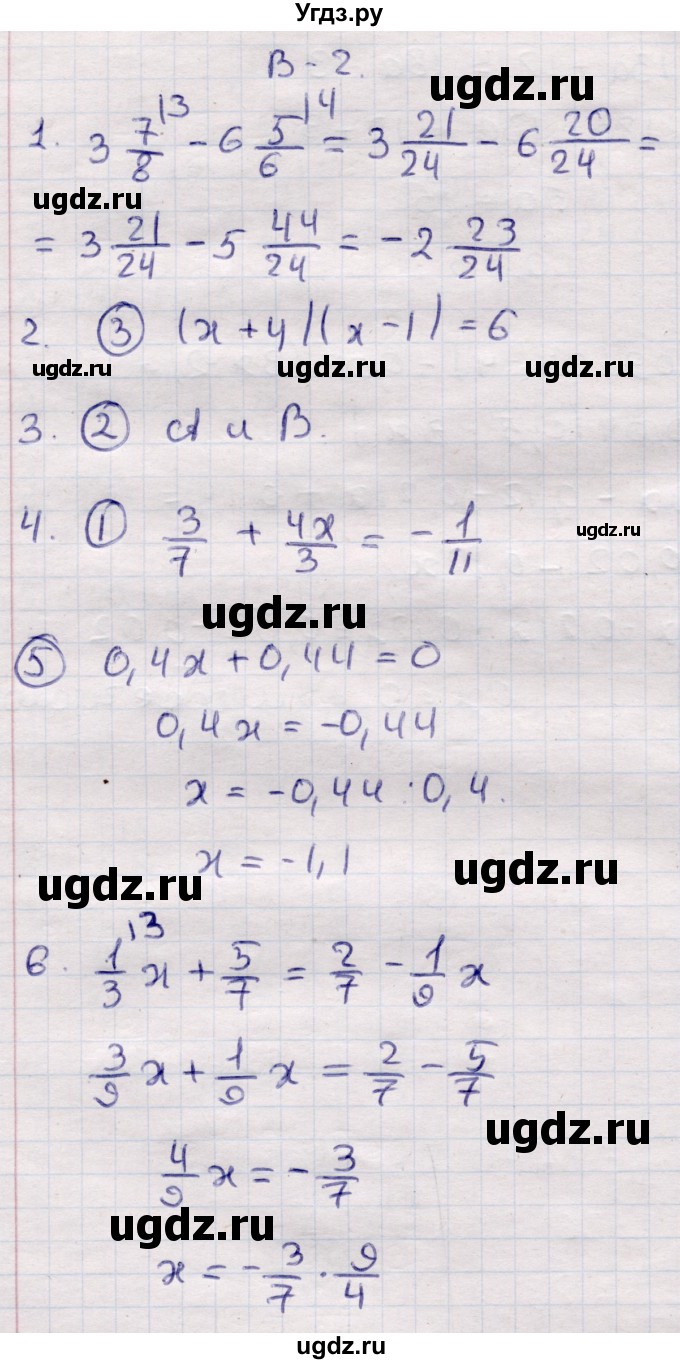 Угдз.ру
В - 2.
ugdz.ru
1. 3 7/8 |3 - 6 5/6 |4 = 3 21/24 - 6 20/24 =
ugdz.ru
= 3 21/24 - 5 44/24 = -2 23/24
2. ③ (x + 4)(x - 1) = 6
ugdz.ru ugdz.ru ugdz.ru
3. ② A и B.
4. ① 3/7 + 4x/3 = - 1/11
ugdz.ru
ugdz.ru
⑤ 0,4x + 0,44 = 0
0,4x = -0,44
x = -0,44 : 0,4.
x = -1,1
ugdz.ru
ugdz.ru
6. 1/3 |3 x + 5/7 = 2/7 - 1/9 x
3/9 x + 1/9 x = 2/7 - 5/7
ugdz.ru
4/9 x = - 3/7
ugdz.ru
x = - 3/7 · 9/4
ugdz.ru